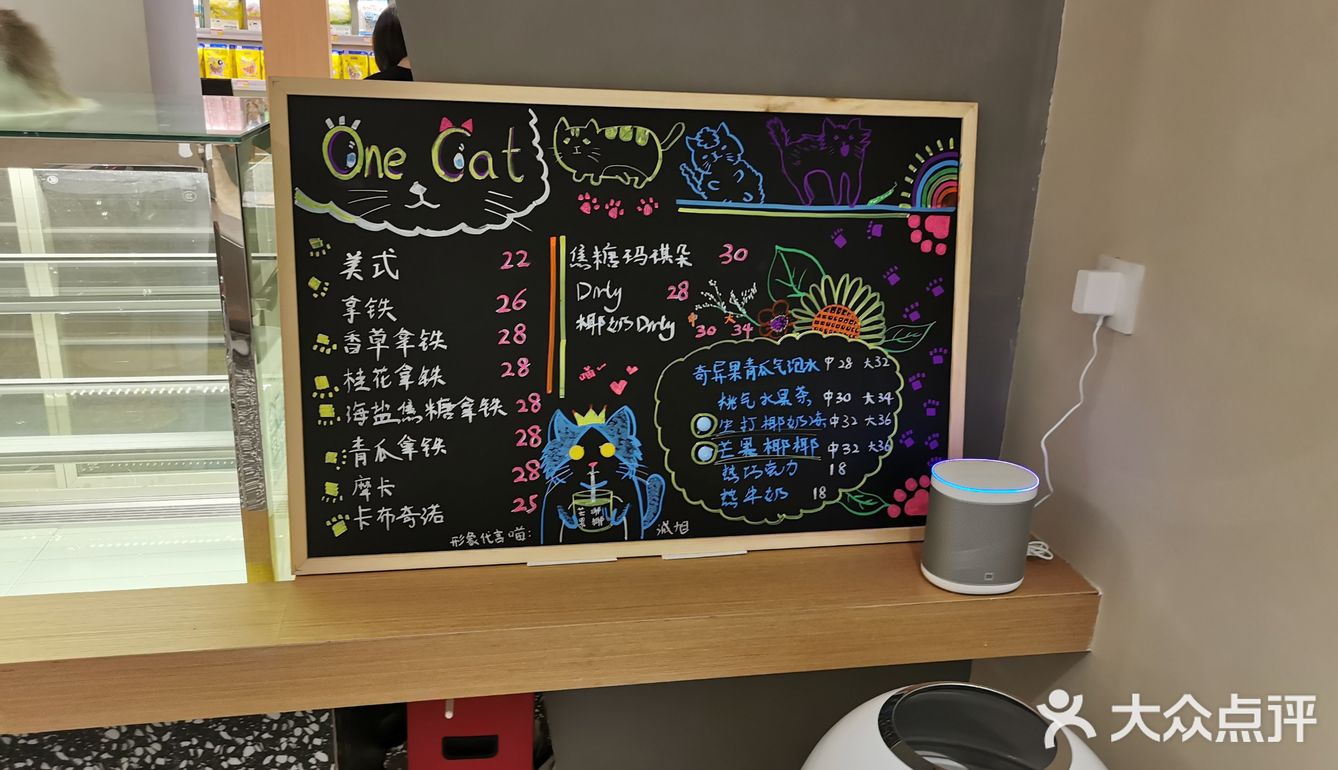 One Cat
美式 22
拿铁 26
香草拿铁 28
桂花拿铁 28
海盐焦糖拿铁 28
青瓜拿铁 28
摩卡 28
卡布奇诺 25
焦糖玛琪朵 30
Dirty 28
椰奶Dirty 中30 大34
喵~
奇异果青瓜气泡水 中28 大32
桃气水果茶 中30 大34
生打椰奶冻 中32 大36
芒果椰椰 中32 大36
热巧克力 18
热牛奶 18
芒果椰椰
形象代言喵:
诚旭
大众点评